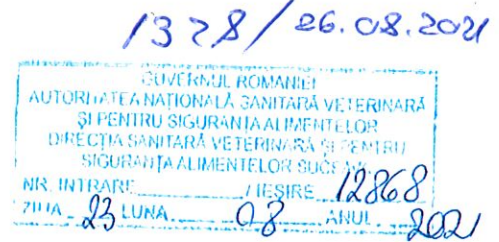 1328/26.08.2021
GUVERNUL ROMÂNIEI
AUTORITATEA NAŢIONALĂ SANITARĂ VETERINARĂ
ŞI PENTRU SIGURANŢA ALIMENTELOR
DIRECŢIA SANITARĂ VETERINARĂ ŞI PENTRU
SIGURANŢA ALIMENTELOR SUCEAVA
NR. INTRARE______/ IEŞIRE 12868
ZIUA 23 LUNA 08 ANUL 2021